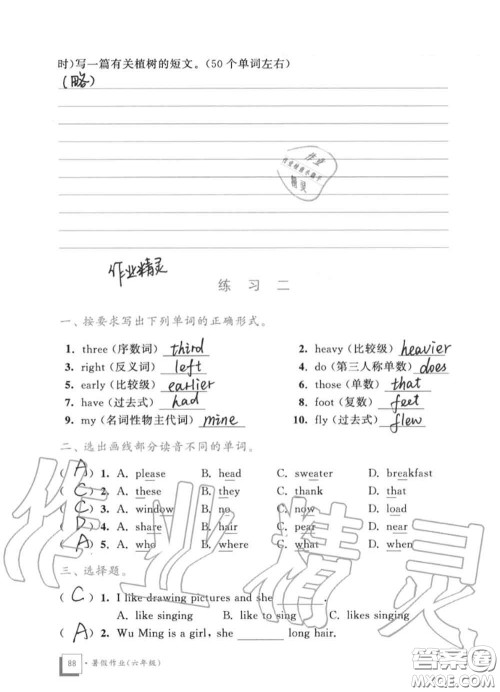 时)写一篇有关植树的短文。(50 个单词左右)
(略)
作业
精灵
作业精灵
练 习 二
一、按要求写出下列单词的正确形式。
1. three (序数词) third 2. heavy (比较级) heavier
3. right (反义词) left 4. do (第三人称单数) does
5. early (比较级) earlier 6. those (单数) that
7. have (过去式) had 8. foot (复数) feet
9. my (名词性物主代词) mine 10. fly (过去式) flew
二、选出画线部分读音不同的单词。
( A ) 1. A. please B. head C. sweater D. breakfast
( C ) 2. A. these B. they C. thank D. that
( C ) 3. A. window B. no C. now D. load
( D ) 4. A. share B. hair C. pear D. near
( A ) 5. A. who B. where C. what D. when
三、选择题。
( C ) 1. I like drawing pictures and she ____.
A. like singing B. like to sing C. likes singing
( A ) 2. Wu Ming is a girl, she ____ long hair.
88 ·暑假作业(六年级)
作业精灵